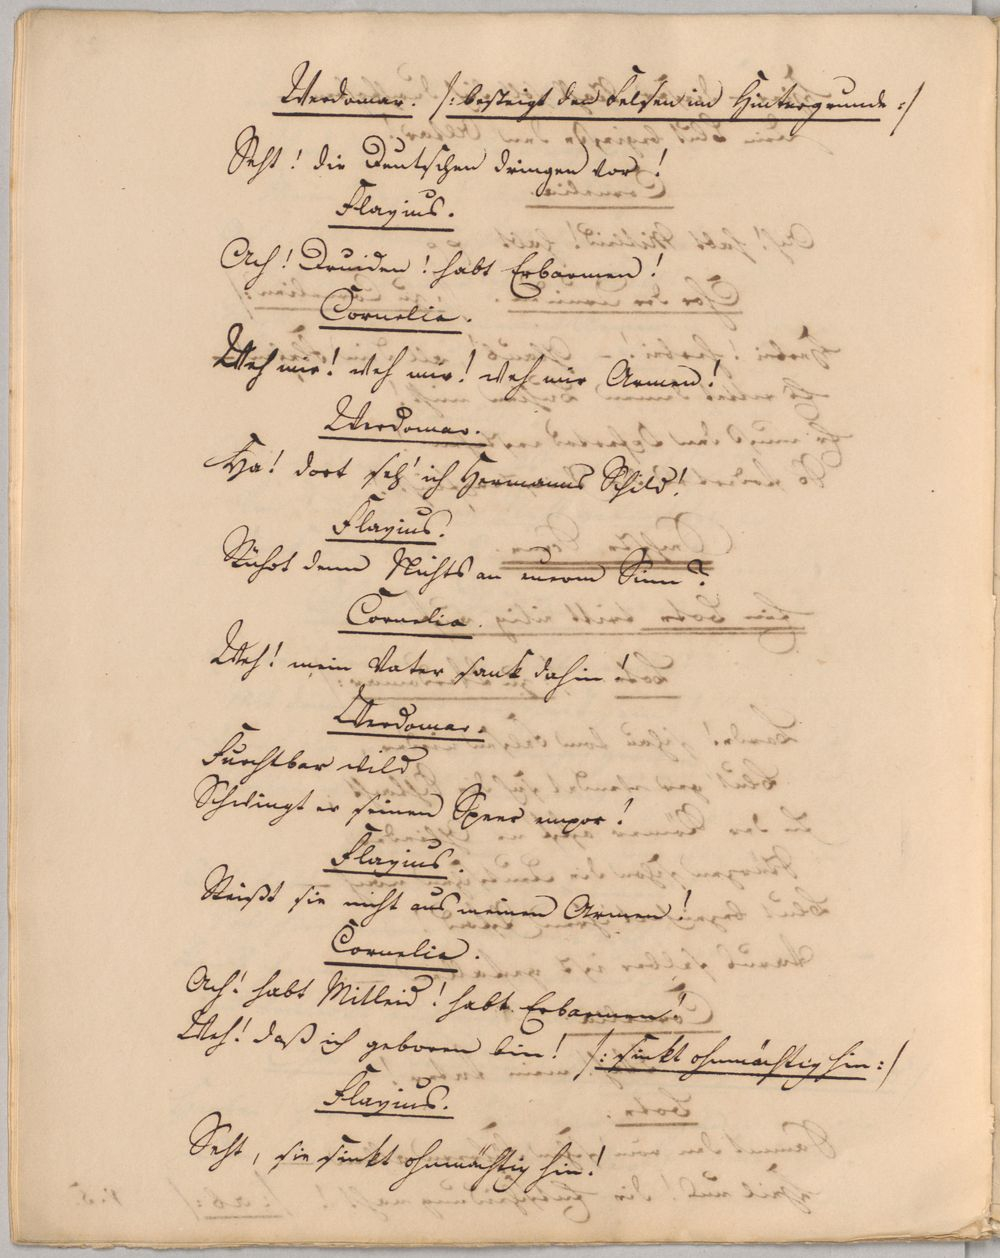 Werdomar. /: besteigt den Felsen im Hintergrunde :/
Seht! die Deutschen dringen vor!
Flavius.
Ach! Druiden! habt Erbarmen!
Cornelia.
Weh mir! weh mir! weh mir Armen!
Werdomar.
Ha! dort seh' ich Hermanns Schild!
Flavius.
Rührt denn Nichts an eurem Sinn?
Cornelia.
Weh! mein Vater sank dahin!
Werdomar.
Furchtbar wild
Schwingt er seinen Speer empor!
Flavius.
Reißt sie nicht aus meinen Armen!
Cornelia.
Ach! habt Mitleid! habt Erbarmen!
Weh! daß ich geboren bin! /: sinkt ohnmächtig hin :/
Flavius.
Seht, sie sinkt ohnmächtig hin!